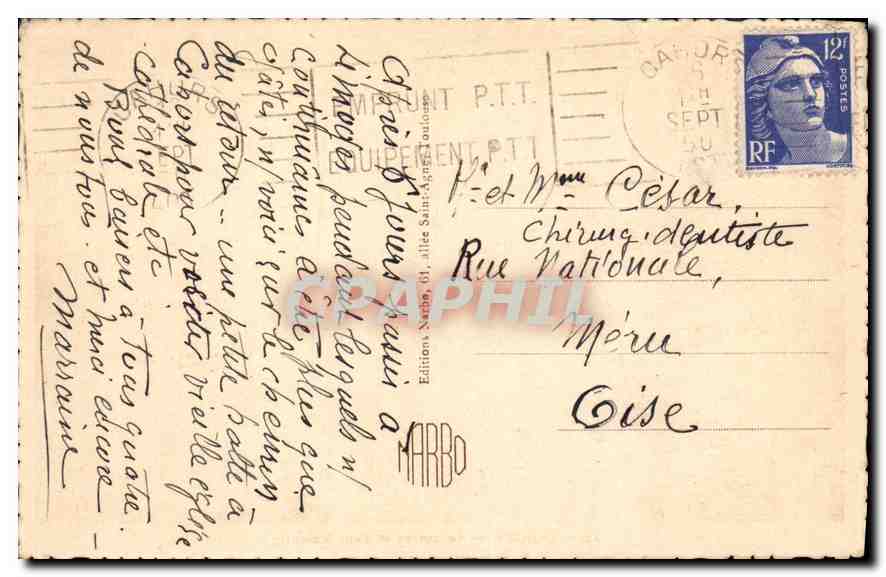 Après 8 jours passés à
Limoges pendant lesquels n/
continuâmes à être plus que
gâtés, n/ voici sur le chemin
du retour... une petite halte à
Cahors pour visiter vieille église
cathédrale etc
Bons baisers à tous quatre.
de nous tous. et merci encore -
Marraine
EMPRUNT P.T.T.
EQUIPEMENT P.T.T.
CAHOR
SEPT
50
12F
POSTES
RF
Mr et Mme César,
Chirurg. dentiste
Rue Nationale,
Méru
Oise
Editions Narbo, 61, allée Saint-Agne, Toulouse
NARBO
CPAPHIL